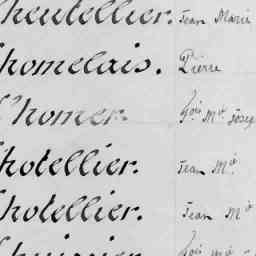 heutellier. Jean Marie
homelais. Pierre
L'homer. fois Mie Josep
hotellier. Jean Mie
hotellier. Jean Mie
huissier